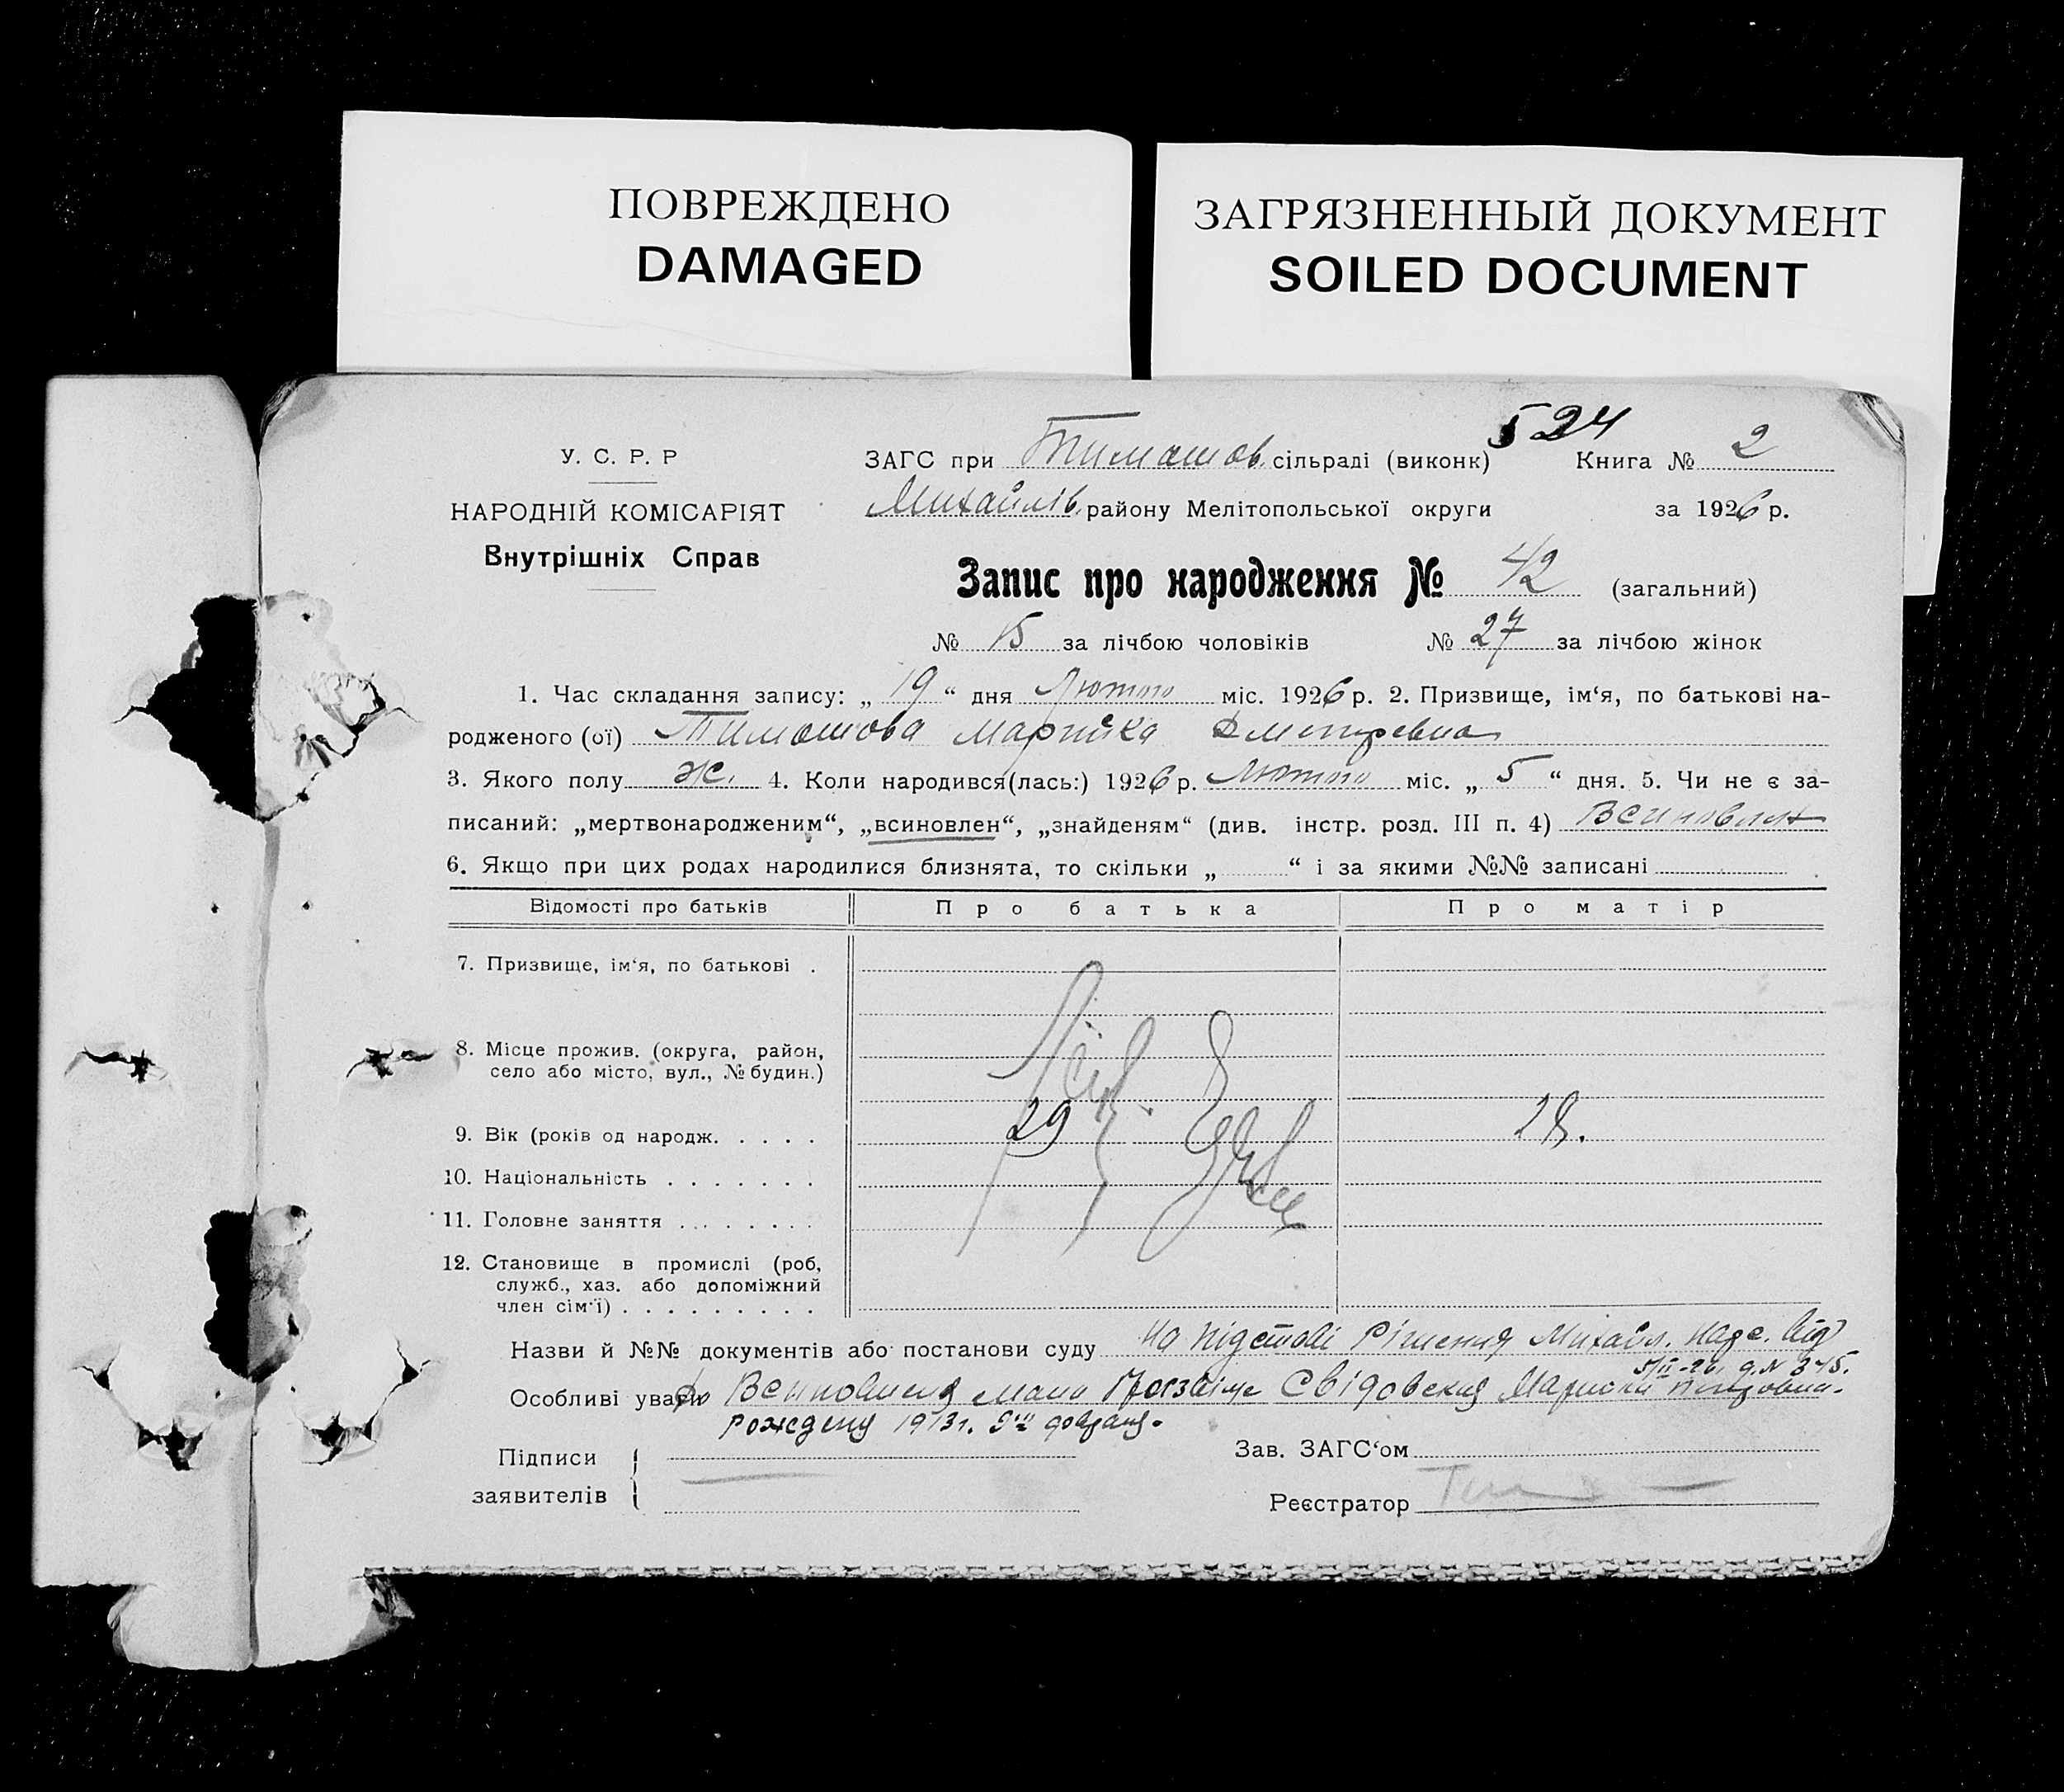 ПОВРЕЖДЕНО
DAMAGED
ЗАГРЯЗНЕННЫЙ ДОКУМЕНТ
SOILED DOCUMENT
524
У. С. Р. Р
НАРОДНІЙ КОМІСАРІЯТ
Внутрішніх Справ
ЗАГС при Тимошов. сільраді (виконк) Книга № 2
Михайлів. району Мелітопольської округи за 1926 р.
Запис про народження № 42 (загальний)
№ 15 за лічбою чоловіків № 27 за лічбою жінок
1. Час складання запису: „ 19 “ дня Лютого міс. 1926 р. 2. Призвище, ім‘я, по батькові на-
родженого (ої) Тимошова Марийка Дмитревна
3. Якого полу ж. 4. Коли народився(лась:) 1926 р. Лютого міс. „ 5 “ дня. 5. Чи не є за-
писаний: „мертвонародженим“, „всиновлен“, „знайденям“ (див. інстр. розд. III п. 4) Всиновлен
6. Якщо при цих родах народилися близнята, то скільки „ “ і за якими №№ записані
Відомості про батьків Про батька Про матір
7. Призвище, ім‘я, по батькові .
8. Місце прожив. (округа, район,
село або місто, вул., № будин.)
9. Вік (років од народж. . . . . 29 28.
10. Національність . . . . . . .
11. Головне заняття . . . . . . .
12. Становище в промислі (роб,
служб., хаз. або допоміжний
член сім‘ї) . . . . . . . . .
Назви й №№ документів або постанови суду На підставі Рішення Михайл. Нарс.
5/II-26. д. № 345.
Особливі уваги Всиновленя мали Прозвіще Свідовская Мариєю Петровни.
Рождену 1913 г. 9го
Підписи
заявителів
Зав. ЗАГС‘ом
Реєстратор